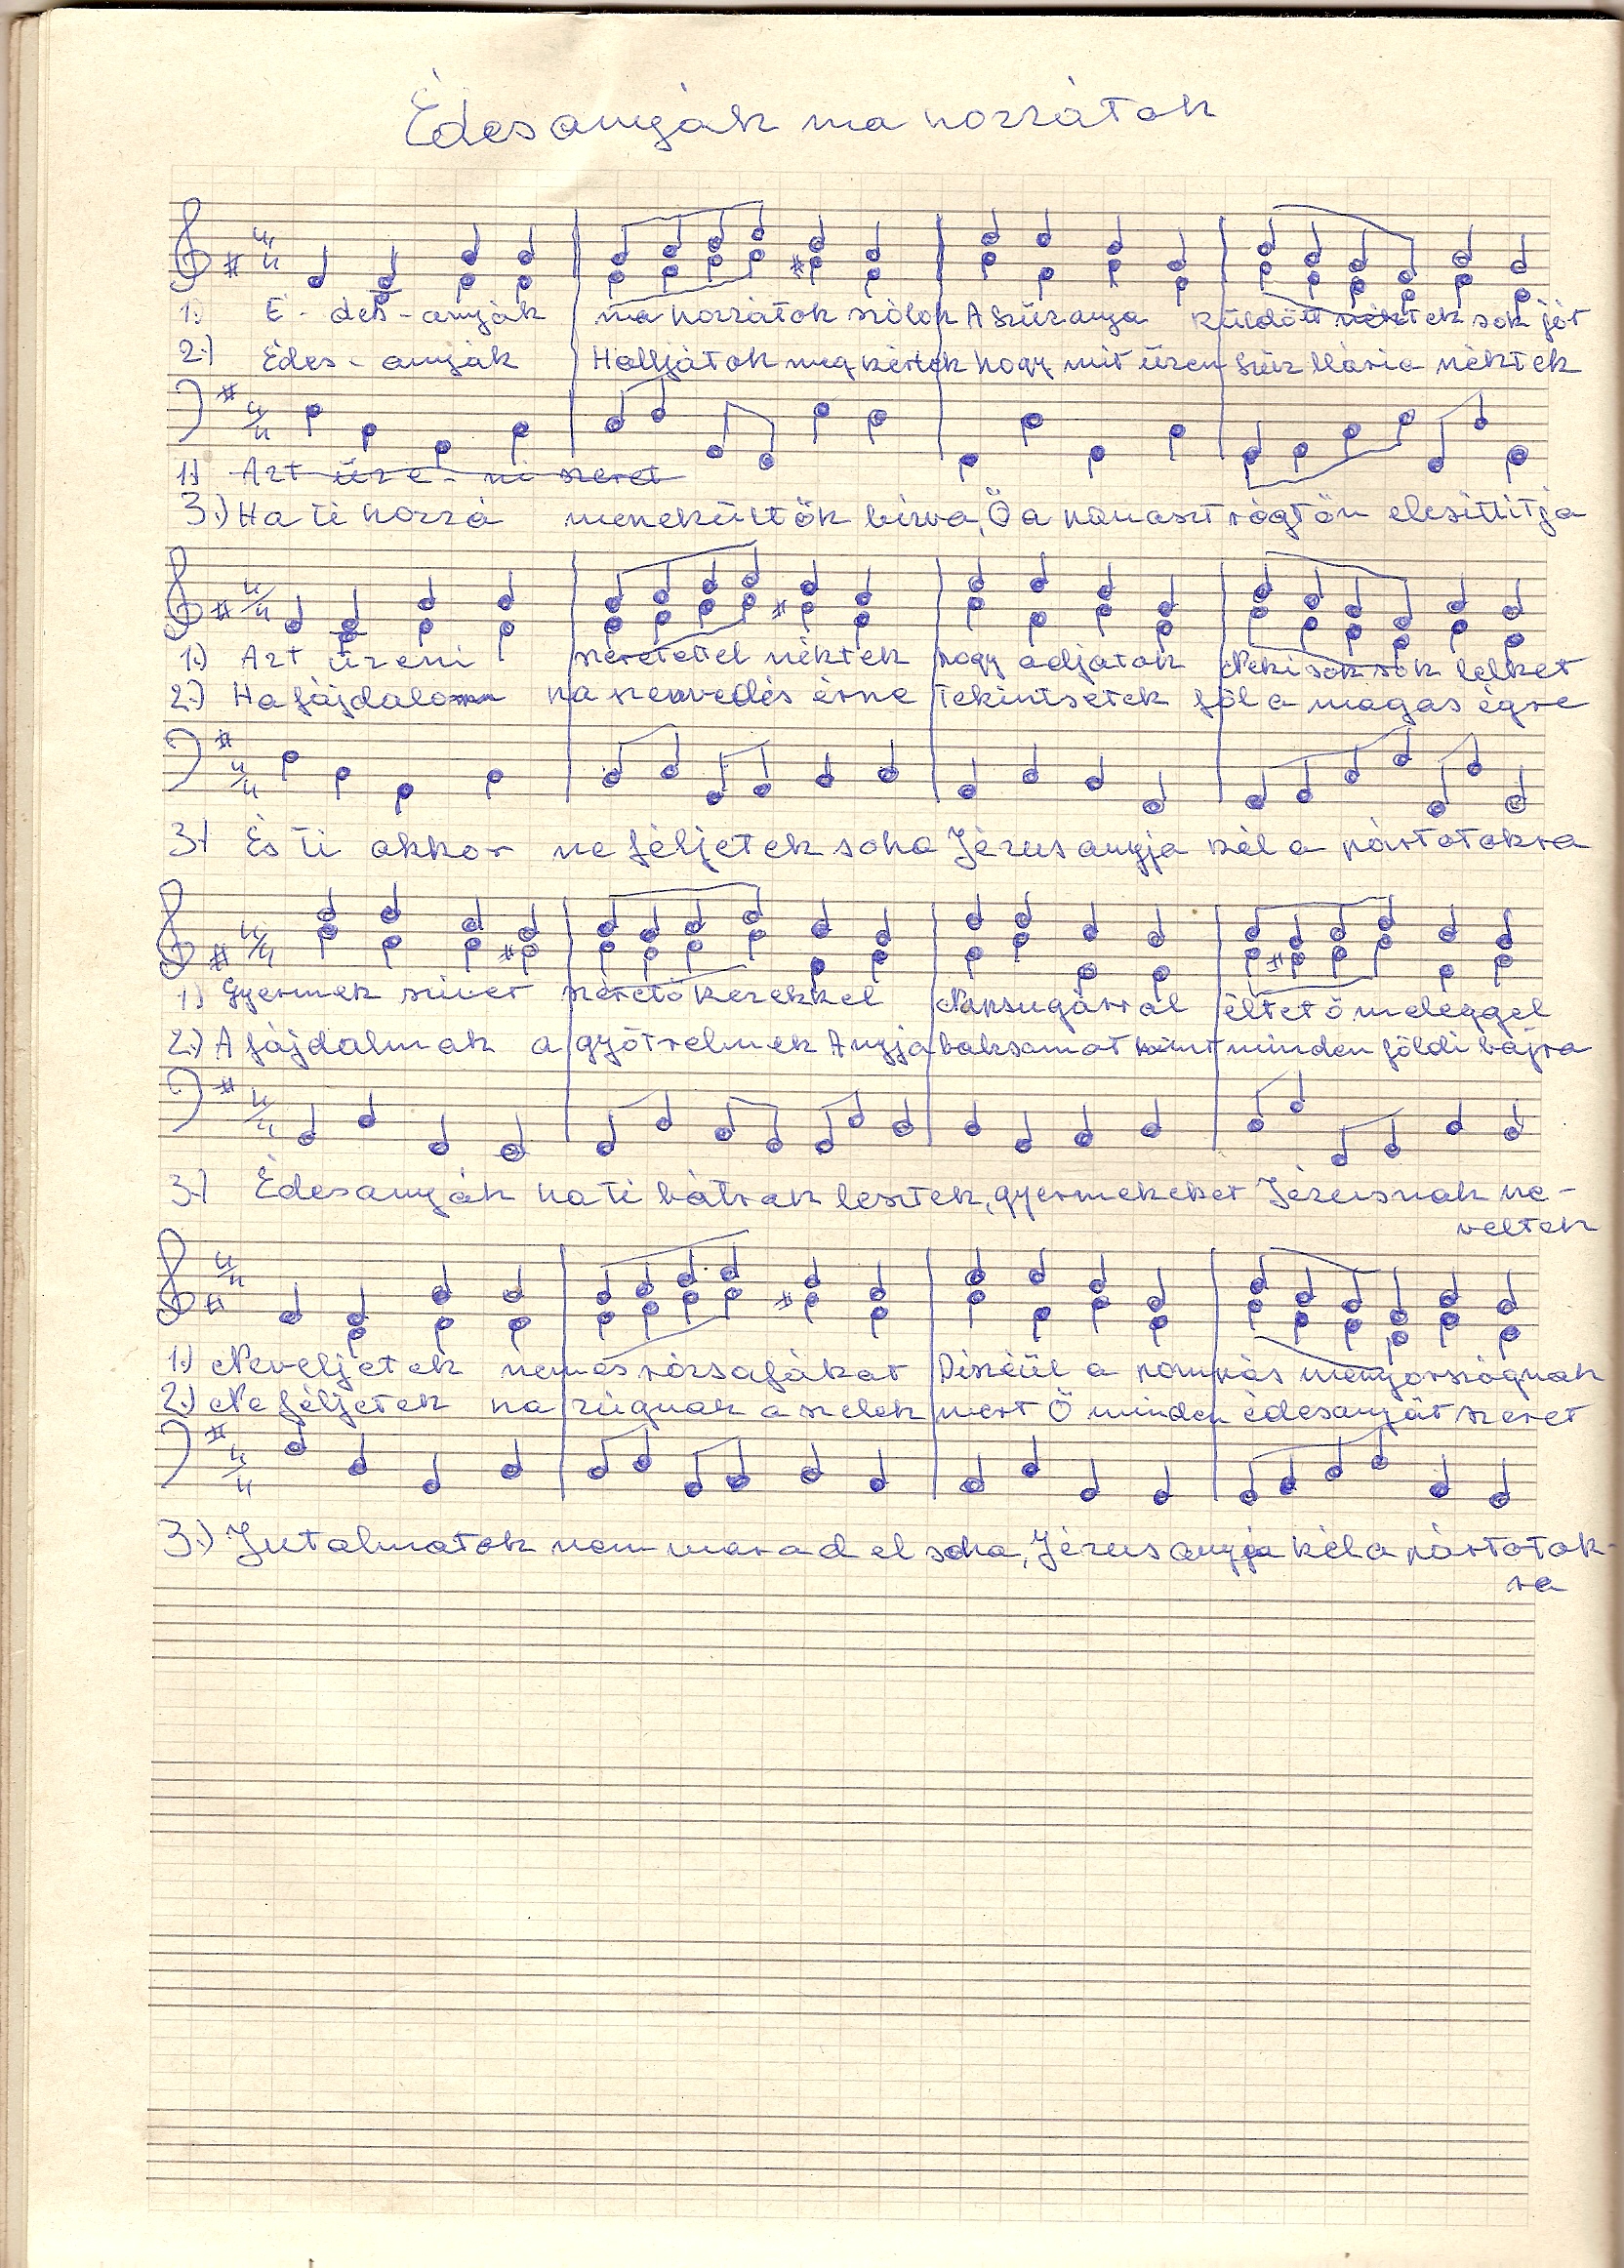 Édesanyák ma hozzátok
1.) É - des - anyák ma hozzátok szólok A Szűzanya küldött néktek sok jót
2.) Édes - anyák Halljátok meg kértek hogy mit üzen Szűz Mária néktek
1.) Azt üze - ni szeret
3.) Ha ti hozzá menekültök bízva, Ő a panaszt rögtön elcsittitja
1.) Azt üzeni szeretettel néktek hogy adjatok Neki sok sok lelket
2.) Ha fájdalom ha szenvedés érne Tekintsetek föl a magas égre
3.) És ti akkor ne féljetek soha Jézus anyja kél a pártotokra
1.) Gyermek szivet szerető kezekkel Napsugárral éltető meleggel
2.) A fájdalmak a gyötrelmek Anyja balzsamot hint minden földi bajra
3.) Édesanyák ha ti bátrak lesztek, gyermekeket Jézusnak ne -
veltek
1.) Neveljetek nemes rózsafákat Díszéül a pompás menyországnak
2.) Ne féljetek ha zúgnak a szelek mert Ő minden édesanyát szeret
3.) Jutalmatok nem marad el soha, Jézus anyja kél a pártotok-
ra